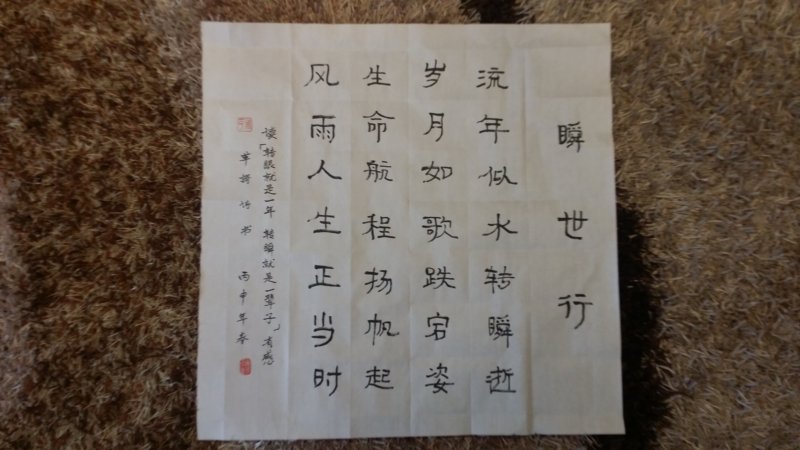 瞬世行
流年似水转瞬逝
岁月如歌跌宕姿
生命航程扬帆起
风雨人生正当时
读「转眼就是一年 转瞬就是一辈子」有感
诗书 丙申年春